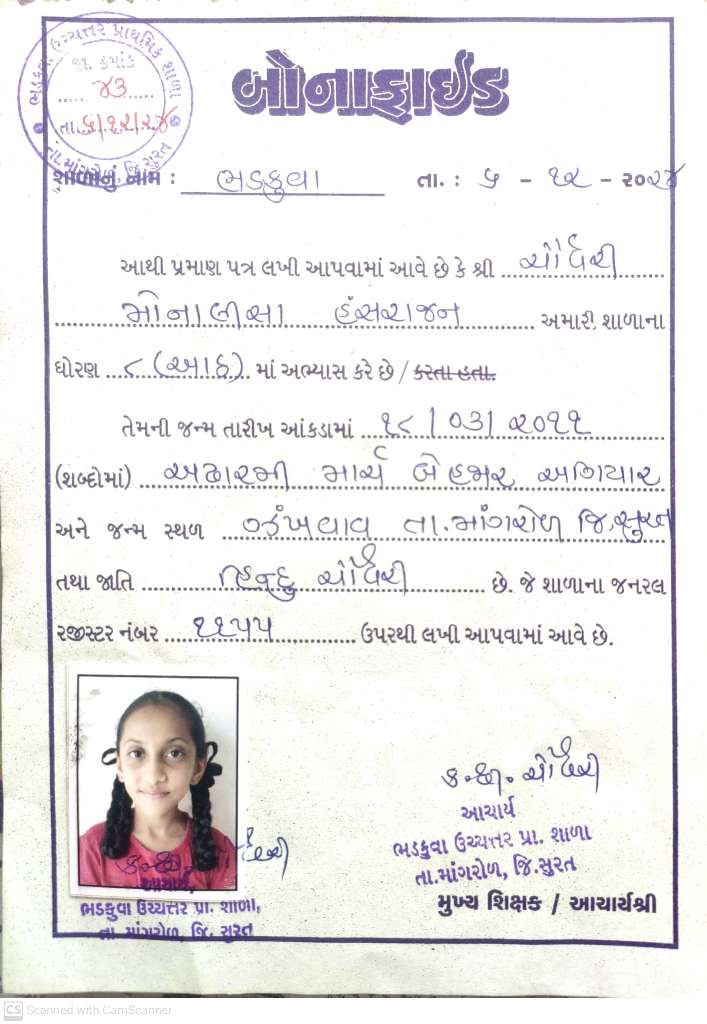 ભડકુવા ઉચ્ચત્તર પ્રાથમિક શાળા
જા. ક્રમાંક
૪૩
તા. ૬/૧૨/૨૪
તા. માંગરોળ, જિ. સુરત
બોનાફાઈડ
શાળાનું નામ : ભડકુવા તા. : ૬ - ૧૨ - ૨૦૨૪
આથી પ્રમાણ પત્ર લખી આપવામાં આવે છે કે શ્રી ચૌધરી
મોનાલીસા હંસરાજન અમારી શાળાના
ધોરણ ૮ (આઠ) માં અભ્યાસ કરે છે / કરતા હતા.
તેમની જન્મ તારીખ આંકડામાં ૧૮ / ૦૩ / ૨૦૧૧
(શબ્દોમાં) અઢારમી માર્ચ બે હજાર અગિયાર
અને જન્મ સ્થળ ઝંખવાવ તા. માંગરોળ જિ. સુરત
તથા જાતિ હિન્દુ ચૌધરી છે. જે શાળાના જનરલ
રજીસ્ટર નંબર ૧૧૫૫ ઉપરથી લખી આપવામાં આવે છે.
ચૌધરી
આચાર્ય
ભડકુવા ઉચ્ચત્તર પ્રા. શાળા
તા.માંગરોળ, જિ.સુરત
મુખ્ય શિક્ષક / આચાર્યશ્રી
આચાર્ય,
ભડકુવા ઉચ્ચત્તર પ્રા. શાળા,
તા. માંગરોળ, જિ. સુરત
CS Scanned with CamScanner